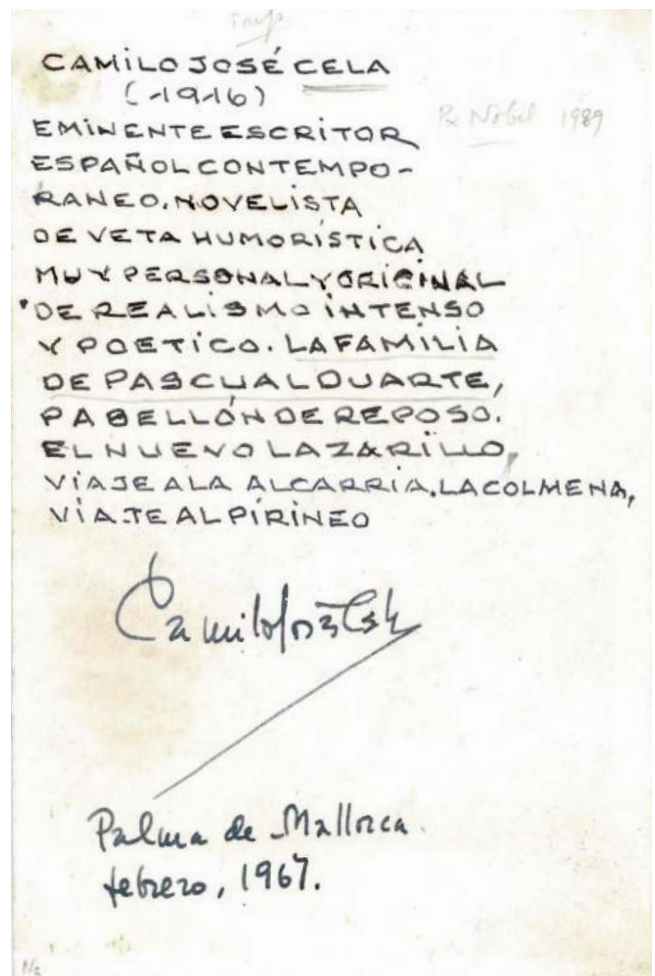 imp
CAMILO JOSÉ CELA
(1916)
Px Nobel 1989
EMINENTE ESCRITOR
ESPAÑOL CONTEMPO-
RANEO. NOVELISTA
DE VETA HUMORÍSTICA
MUY PERSONAL Y ORIGINAL
DE REALISMO INTENSO
Y POETICO. LA FAMILIA
DE PASCUAL DUARTE,
PABELLÓN DE REPOSO.
EL NUEVO LAZARILLO,
VIAJE A LA ALCARRIA. LA COLMENA,
VIAJE AL PIRINEO
Camilo José Cela
Palma de Mallorca.
febrero, 1967.